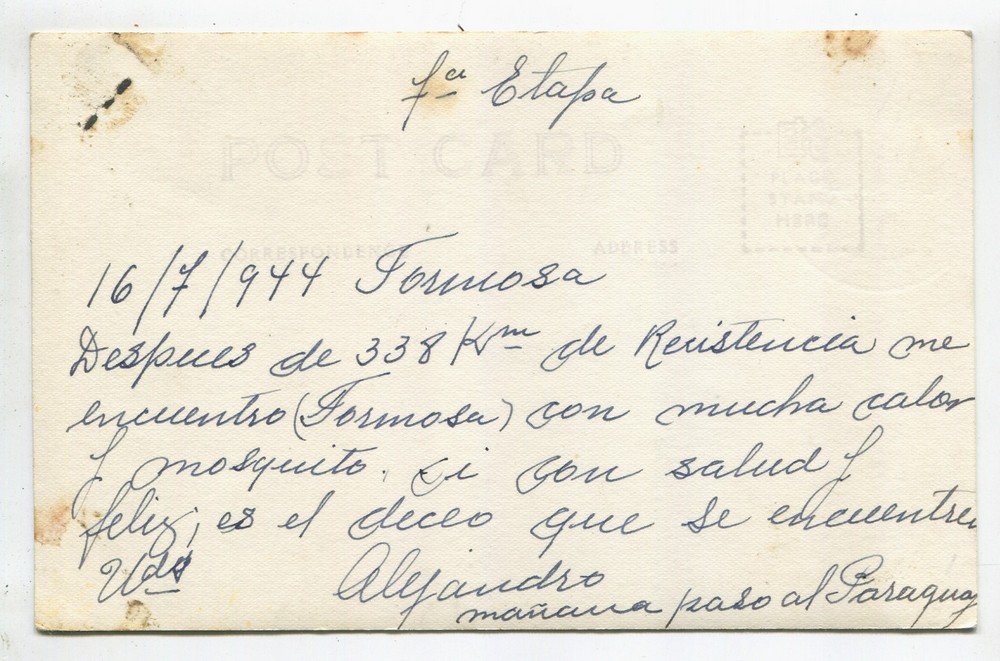 1ª Etapa
POST CARD
PLACE
STAMP
HERE
CORRESPONDENCE
ADDRESS
16/7/944 Formosa
Despues de 338 Km de Resistencia me
encuentro (Formosa) con mucha calor
y mosquito. si con salud y
feliz, es el deceo que se encuentren
Uds
Alejandro
mañana paso al Paraguay